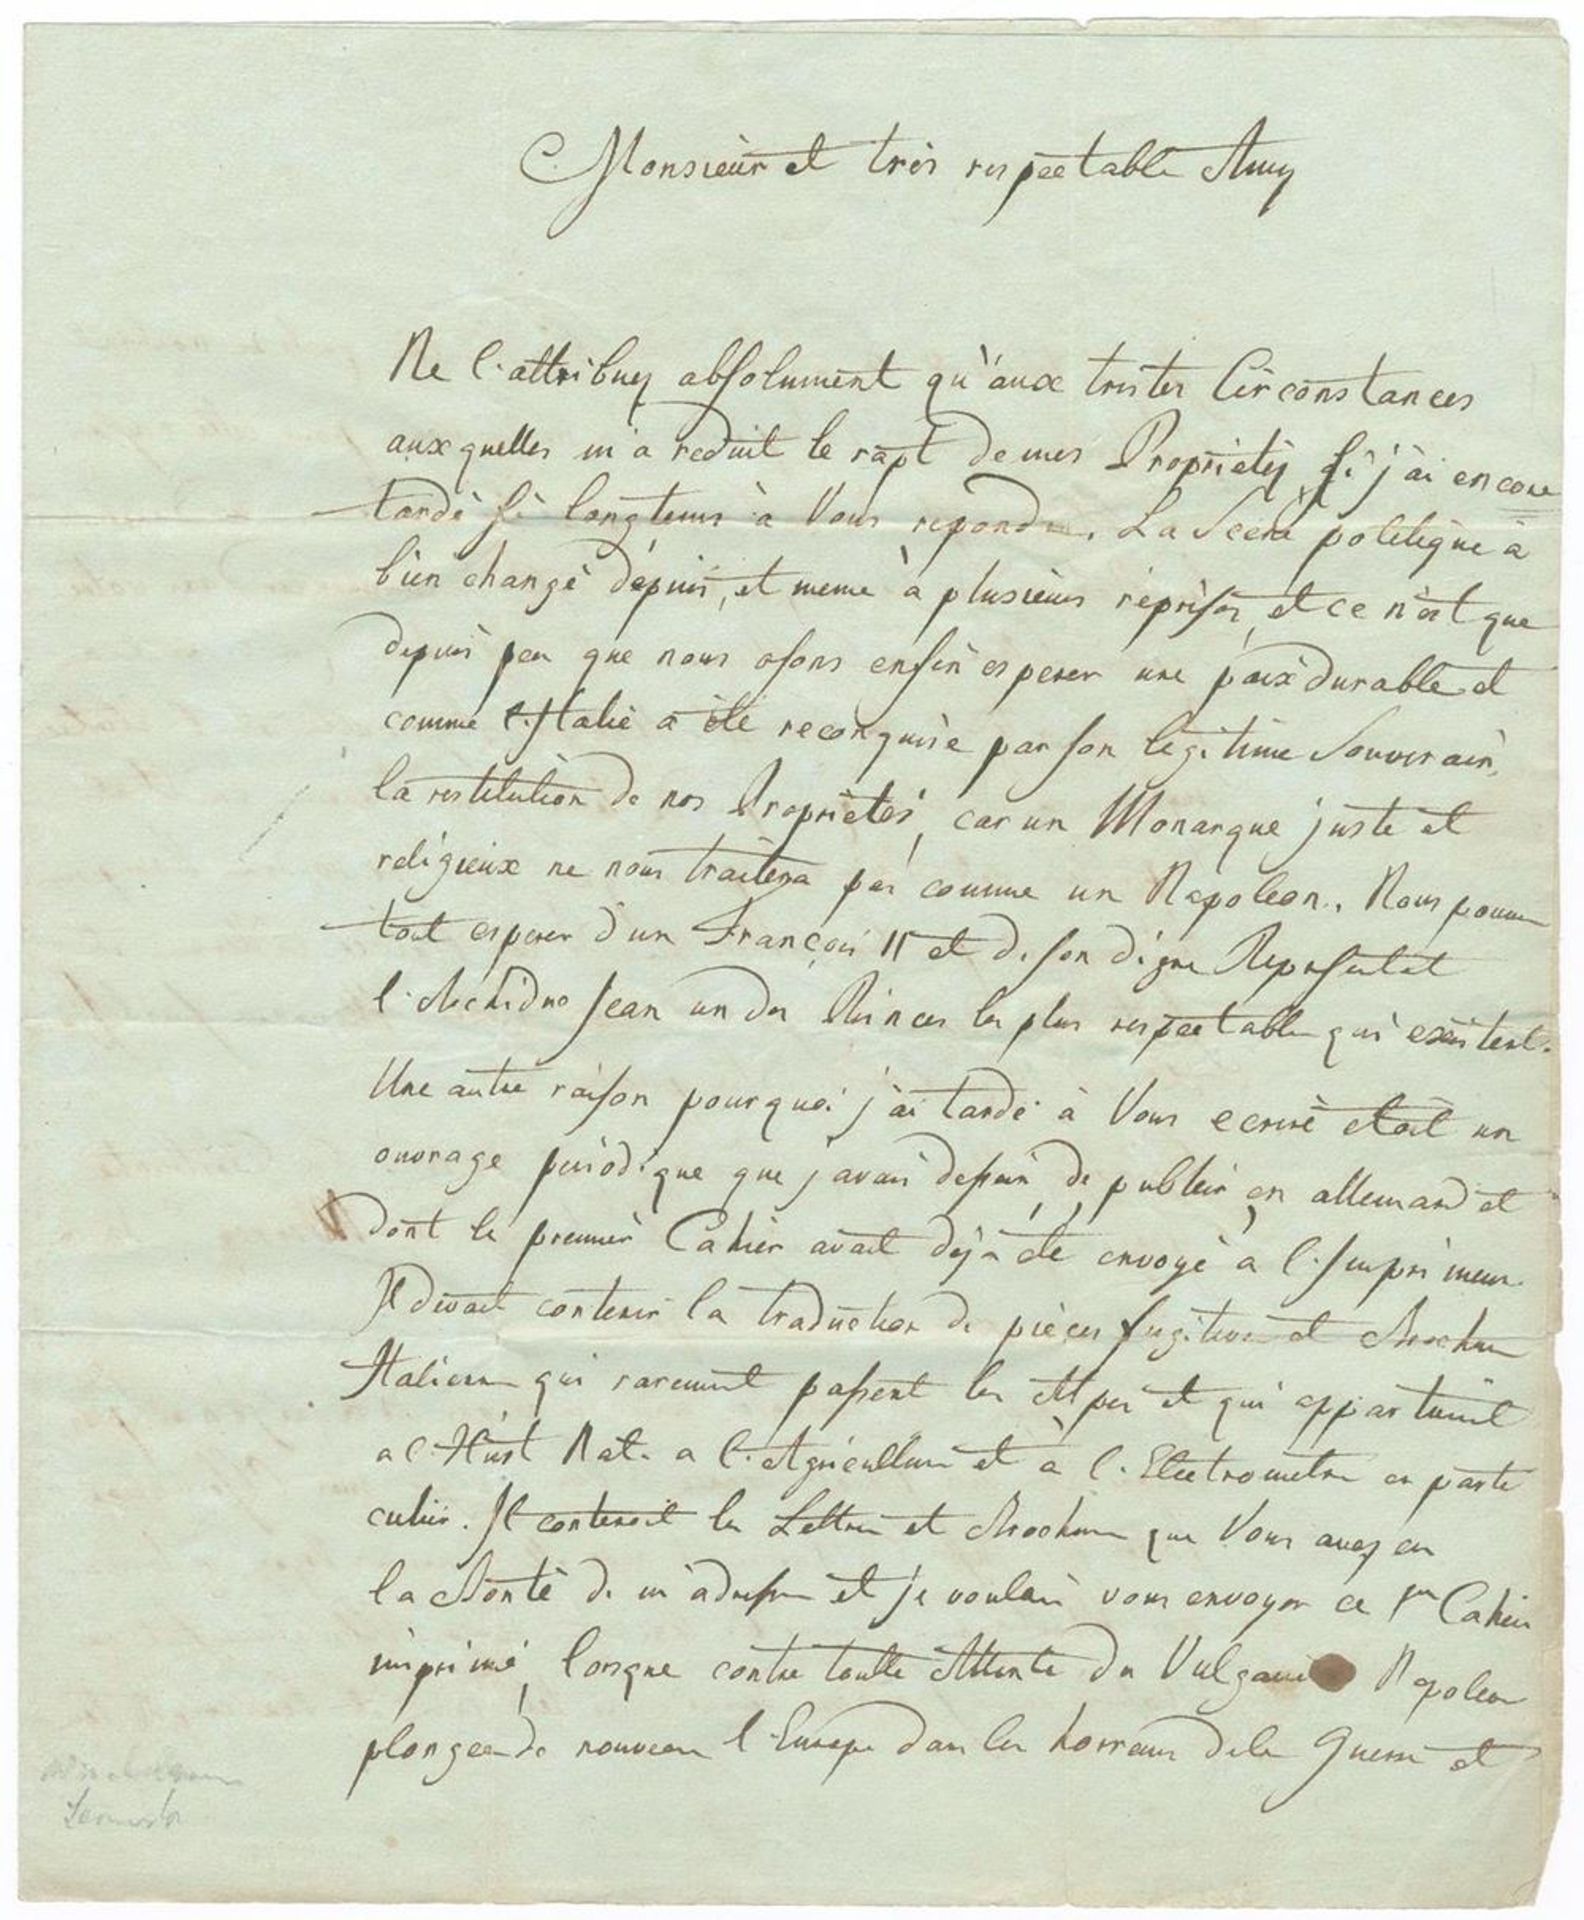 Monsieur et très respectable Amy
Ne l'attribuez absolument qu'aux tristes Circonstances
auxquelles m'a reduit le rapt de mes Proprietés si j'ai encore
tardé si longtems à Vous repondre. La Scene politique à
bien changé depuis, et meme à plusieurs reprises, et ce n'est que
depuis peu que nous osons enfin esperer une paix durable et
comme l'Italie a été reconquise par son legitime Souverain,
la restitution de nos Proprietés, car un Monarque juste et
religieux ne nous traitera pas comme un Napoleon. Nous pouvons
tout esperer d'un François II et de son digne Represtat
l'Archiduc Jean un des Princes les plus respectables qui existent.
Une autre raison pourquoi j'ai tardé à Vous ecrire etoit un
ouvrage periodique que j'avais dessein de publier en allemand et
dont le premier Cahier avait dejà été envoyé à l'Imprimeur.
Il devait contenir la traduction de pièces fugitives et Brochures
Italiennes qui rarement passent les Alpes et qui appartiennent
a l'Hist Nat. a l'Agriculture et à l'Electrometre en parti
culier. Il contenoit les Lettres et Brochures que Vous avez eu
la Bonté de m'adresser et je voulais vous envoyer ce 1er Cahier
imprimé, lorsque contre toutte Attente du Vulgaire Napoleon
plongea de nouveau l'Europe dans les horreurs de la Guerre et